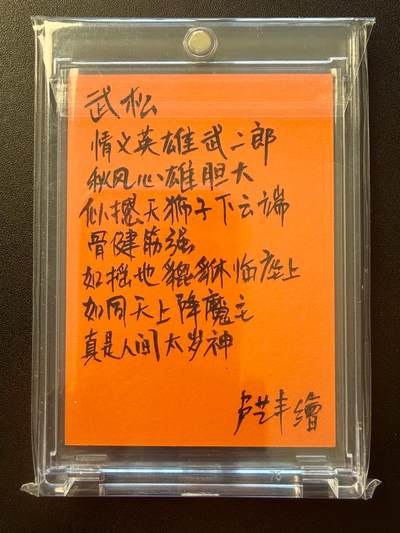 武松
情义英雄武二郎
秋风心雄胆大
似撼天狮子下云端
骨健筋强
如摇地貔貅临座上
如同天上降魔主
真是人间太岁神
卢艺丰繪